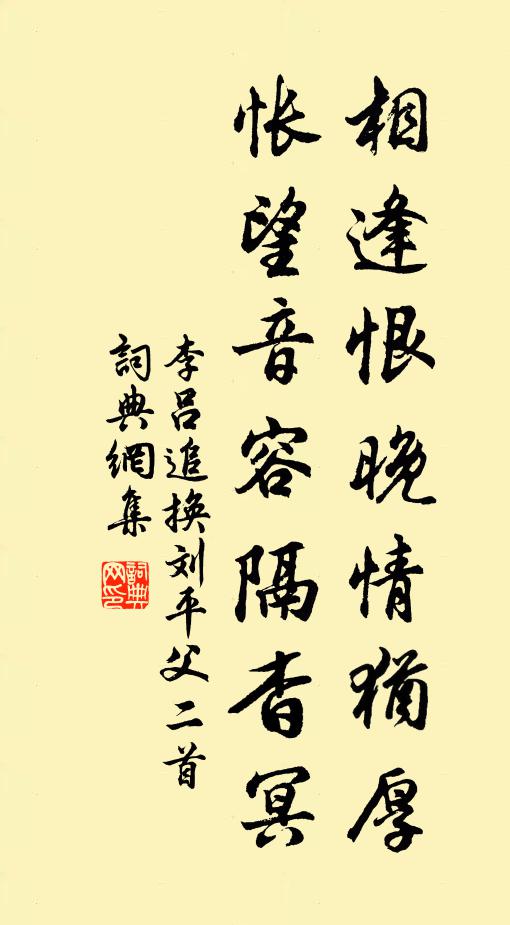 相逢恨晚情猶厚
怅望音容隔杳冥
李呂追换刘平父二首
詞典網集
詞典
网印